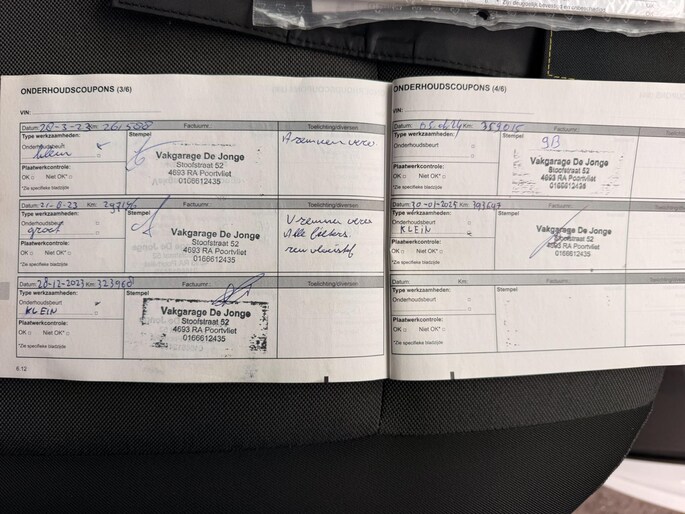 ONDERHOUDSCOUPONS (3/6)
VIN:
Datum: 28-3-23 Km: 261588 Factuurnr.: Toelichting/diversen
Type werkzaamheden: Stempel
Onderhoudsbeurt
klein
Plaatwerkcontrole:
OK Niet OK*
*Zie specifieke bladzijde
Vakgarage De Jonge
Stoofstraat 52
4693 RA Poortvliet
0166612435
A remmen vere
Datum: 21-8-23 Km: Factuurnr.: Toelichting/diversen
Type werkzaamheden: Stempel
Onderhoudsbeurt
groot
Plaatwerkcontrole:
OK Niet OK*
*Zie specifieke bladzijde
Vakgarage De Jonge
Stoofstraat 52
4693 RA Poortvliet
0166612435
V remmen vere
Alle filters.
rem vloeistof
Datum: 28-12-2023 Km: 323968 Factuurnr.: Toelichting/diversen
Type werkzaamheden: Stempel
Onderhoudsbeurt
KLEIN
Plaatwerkcontrole:
OK Niet OK*
*Zie specifieke bladzijde
Vakgarage De Jonge
Stoofstraat 52
4693 RA Poortvliet
0166612435
6.12
ONDERHOUDSCOUPONS (4/6)
VIN:
Datum: Km: 359015 Factuurnr.:
Type werkzaamheden: Stempel
Onderhoudsbeurt
Plaatwerkcontrole:
OK Niet OK*
*Zie specifieke bladzijde
GB
Vakgarage De Jonge
Stoofstraat 52
4693 RA Poortvliet
0166612435
Datum: 30-01-2025 Km: 393647 Factuurnr.:
Type werkzaamheden: Stempel
Onderhoudsbeurt
KLEIN
Plaatwerkcontrole:
OK Niet OK*
*Zie specifieke bladzijde
Vakgarage De Jonge
Stoofstraat 52
4693 RA Poortvliet
0166612435
Datum: Km: Factuurnr.:
Type werkzaamheden: Stempel
Onderhoudsbeurt
Plaatwerkcontrole:
OK Niet OK*
*Zie specifieke bladzijde